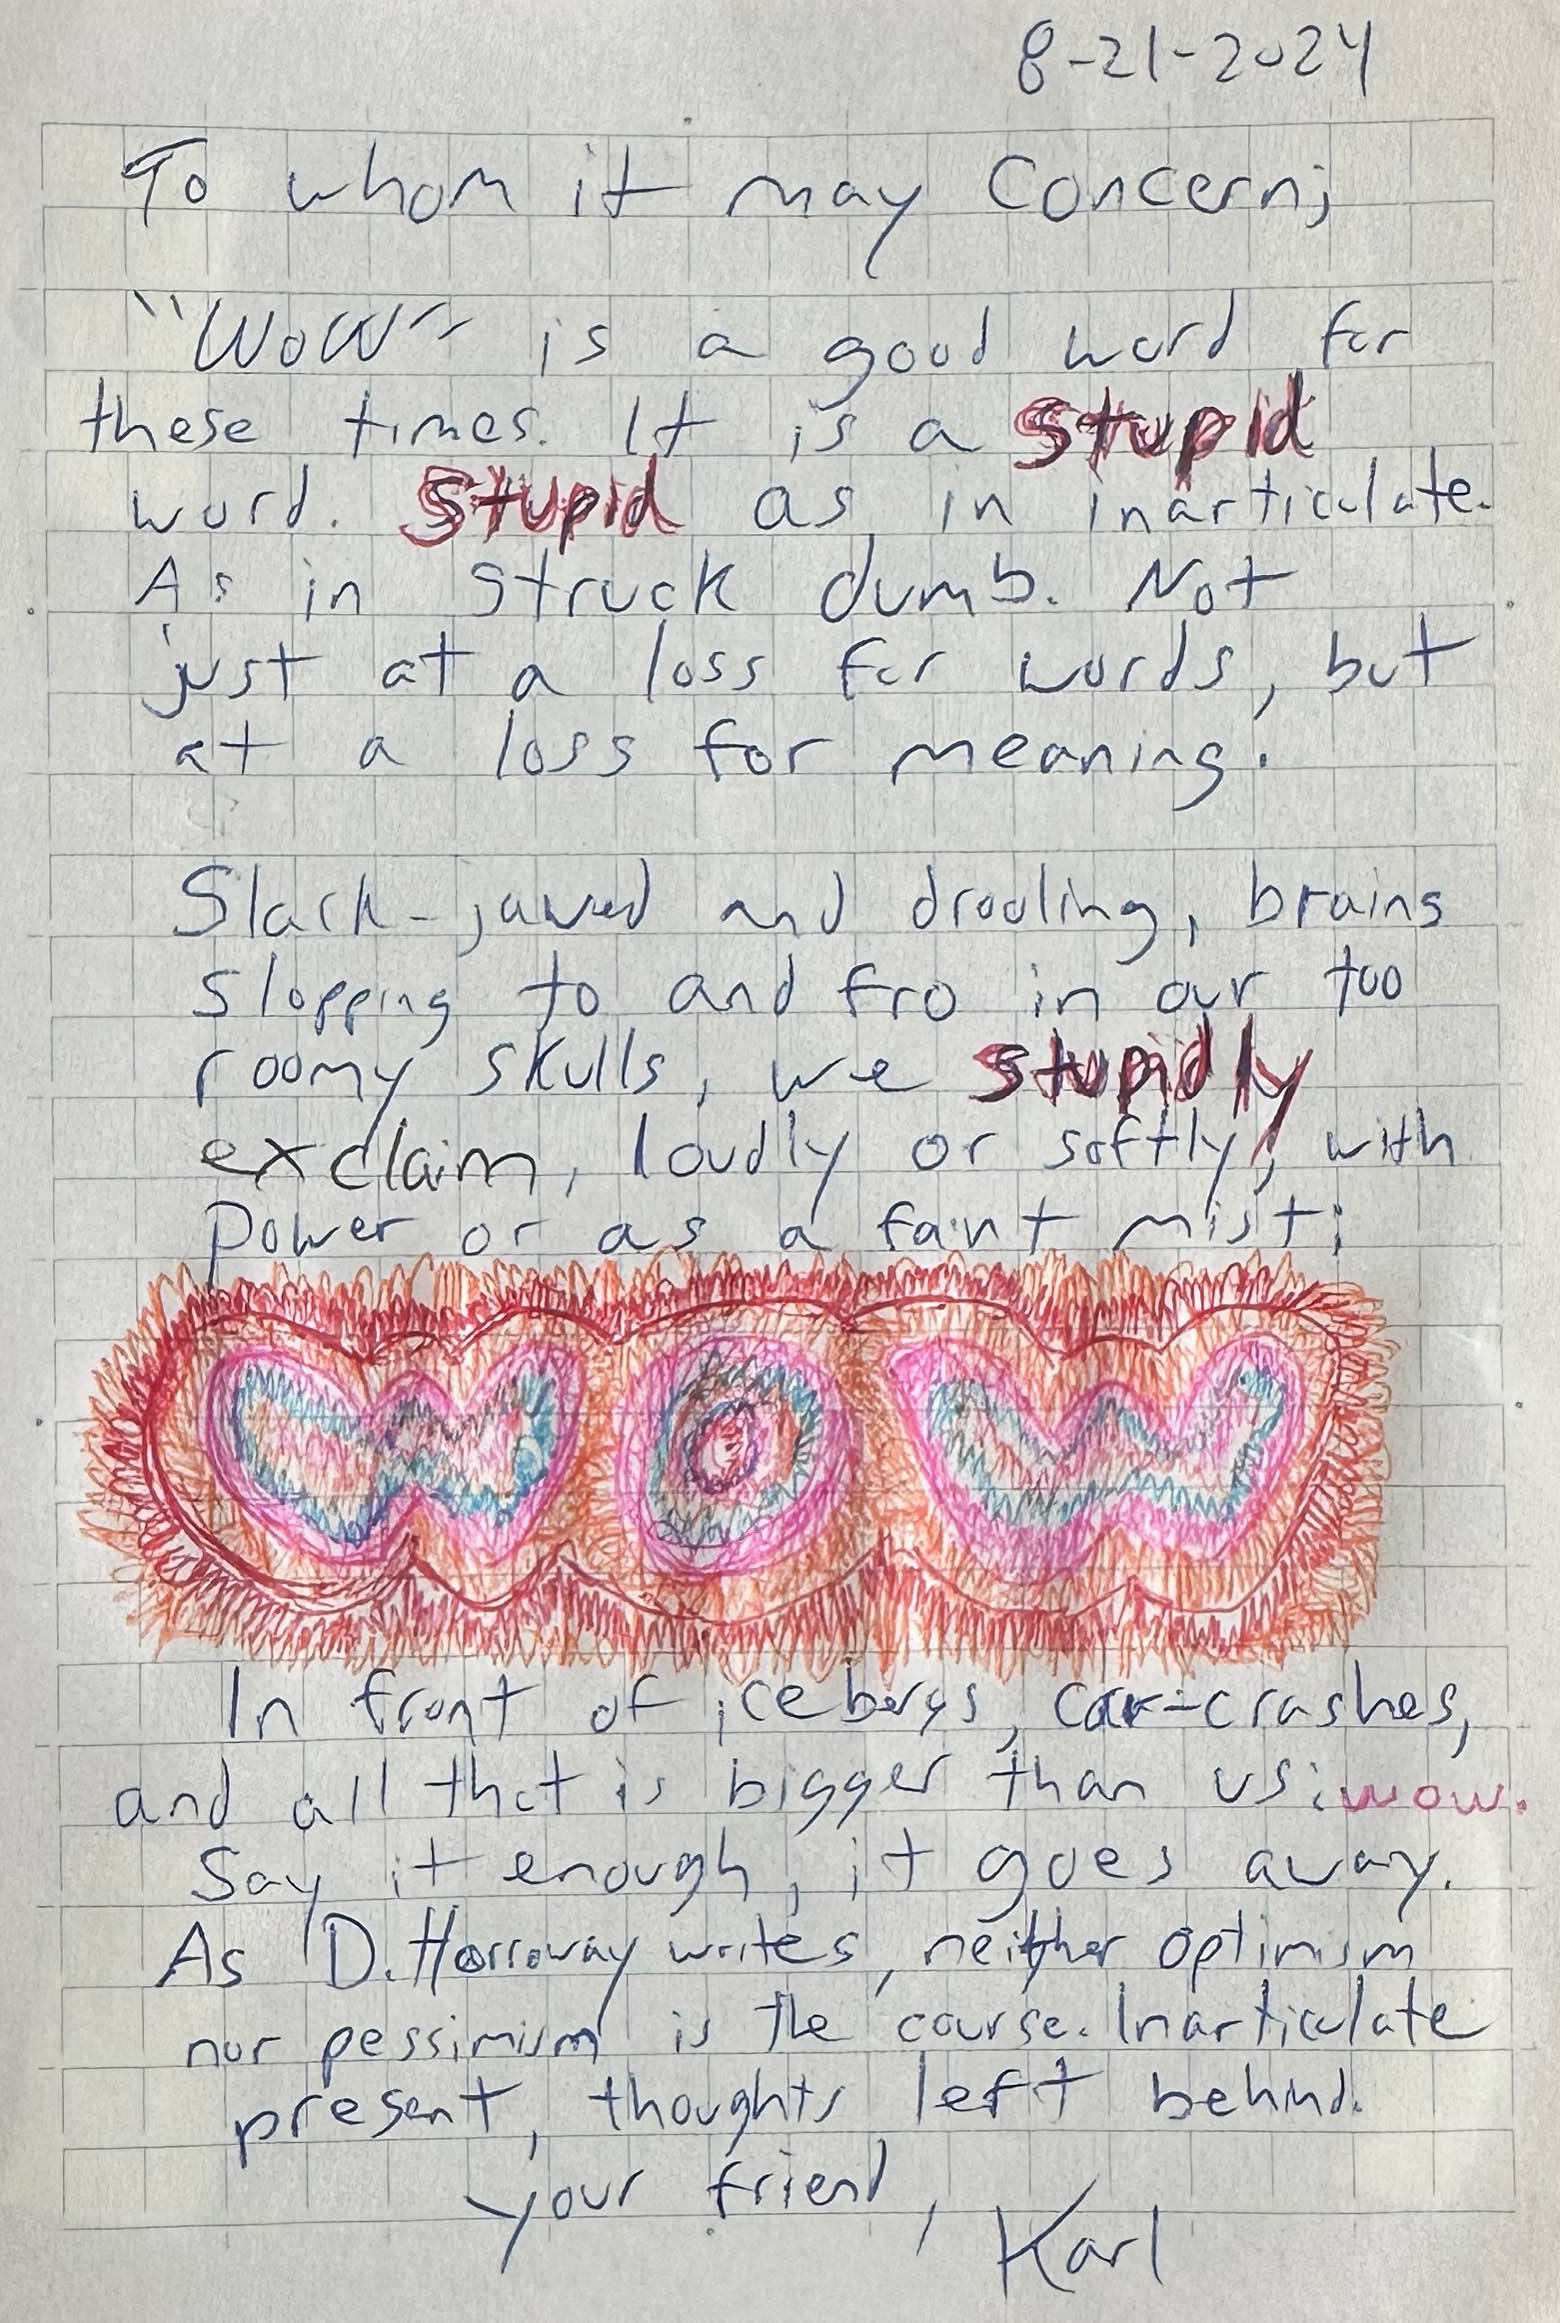 8-21-2024
To whom it may concern;
"WoW" is a good word for
these times. It is a stupid
word. Stupid as in inarticulate.
As in struck dumb. Not
just at a loss for words, but
at a loss for meaning.
Slack-jawed and drooling, brains
slopping to and fro in our too
roomy skulls, we stupidly
exclaim, loudly or softly, with
power or as a faint mist:
WOW
In front of icebergs, car-crashes,
and all that is bigger than us: wow.
Say it enough, it goes away.
As D. Harroway writes, neither optimism
nor pessimism is the course. Inarticulate
present, thoughts left behind.
your friend,
Karl